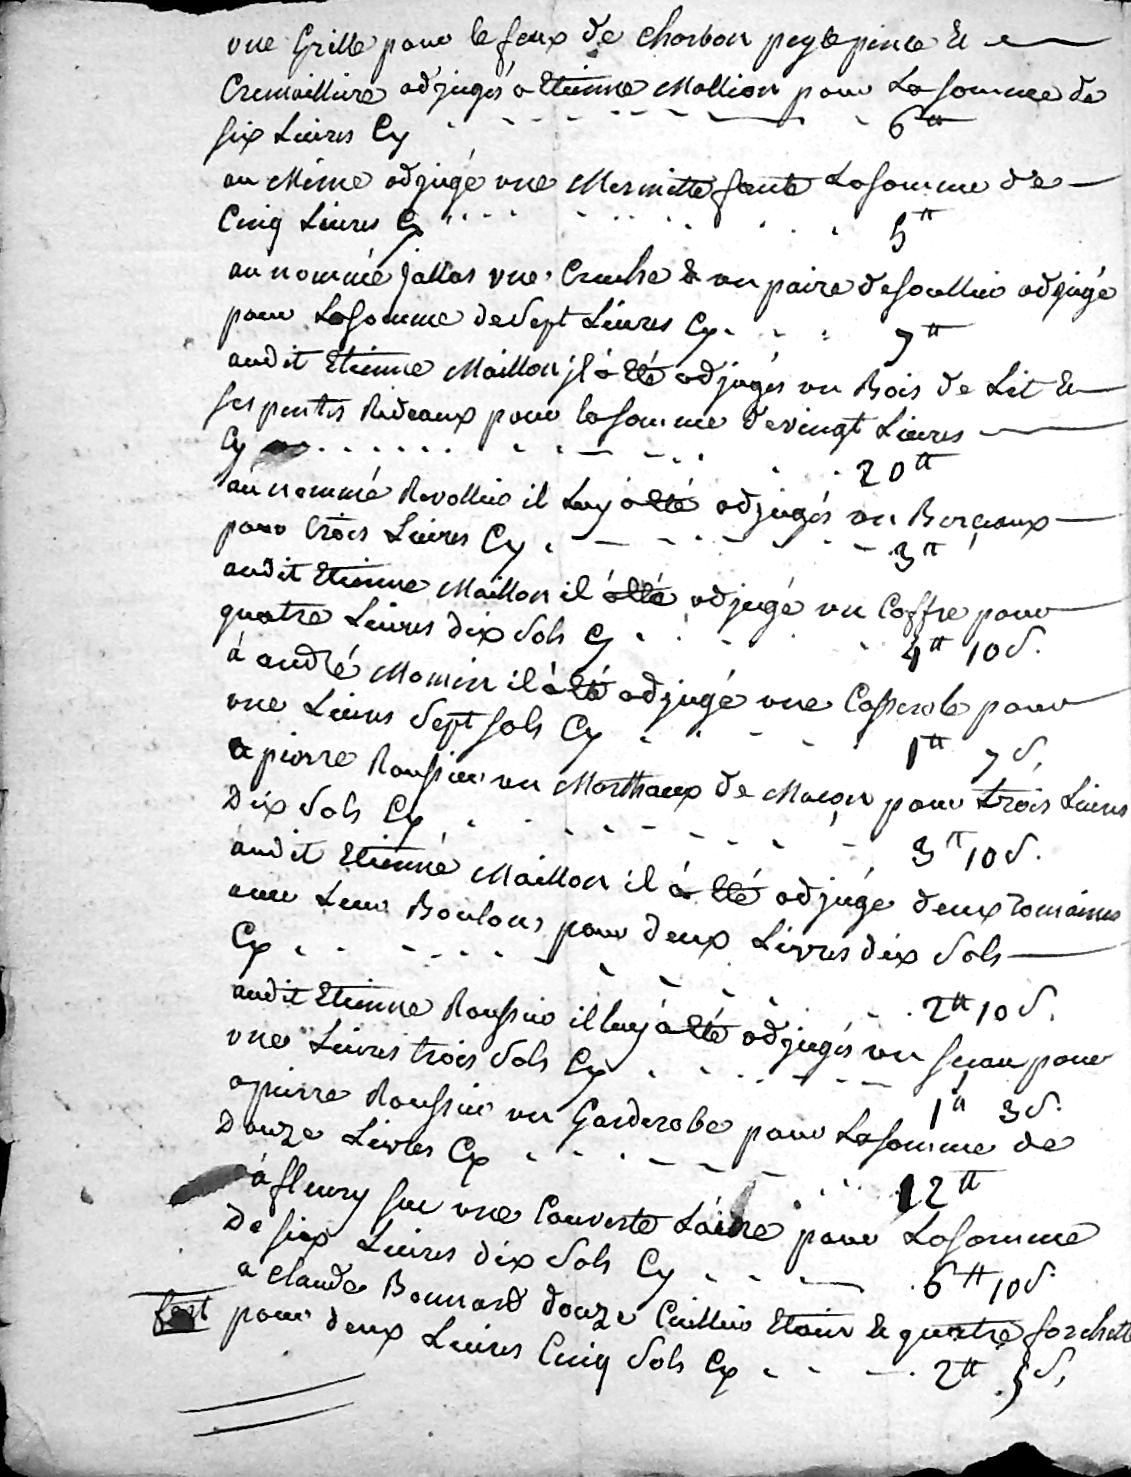 vne Grille pour le feux de charbon pegle pince Et
Cremailliere adjugés a Etienne Mallion pour La somme de
six Livres Cy 6 ₶
au Même adjugé vne Marmitte fonte La somme de
Cinq Livres Cy 5 ₶
au nommé jallas vne Cruche & un paire de soullier adjugé
pour La somme de Sept Livres Cy 7 ₶
audit Etienne Maillon jl á Eté adjugés un Bois de Lit Et
ses pentes Rideaux pour la somme de vingt Livres
Cy 20 ₶
au nommé Revollier il Luy á été adjugés un Berceaux
pour trois Livres Cy 3 ₶
audit Etienne Maillon il á été adjugé un Coffre pour
quatre Livres dix Sols Cy 4 ₶ 10 S.
á andré Momin il á été adjugé vne Casserole pour
vne Livres Sept sols Cy 1 ₶ 7 S.
a pierre Roussier un Morthaux de Maçon pour trois Livres
Dix Sols Cy 3 ₶ 10 S.
audit Etienne Maillon il á Eté adjugé deux romaines
avec Leur Boulons pour deux Livres dix Sols
Cy 2 ₶ 10 S.
audit Etienne Roussier il luy á été adjugés un seau pour
vne Livres trois Sols Cy 1 ₶ 3 S.
a pierre Roussier un Garderobe pour La somme de
Douze Livres Cy 12 ₶
á fleury vne Couverte Laine pour La somme
De six Livres dix Sols Cy 6 ₶ 10 S.
a Claude Bonnard douze Cuillier Etain & quatre forchette
pour deux Livres Cinq Sols Cy 2 ₶ 5 S.